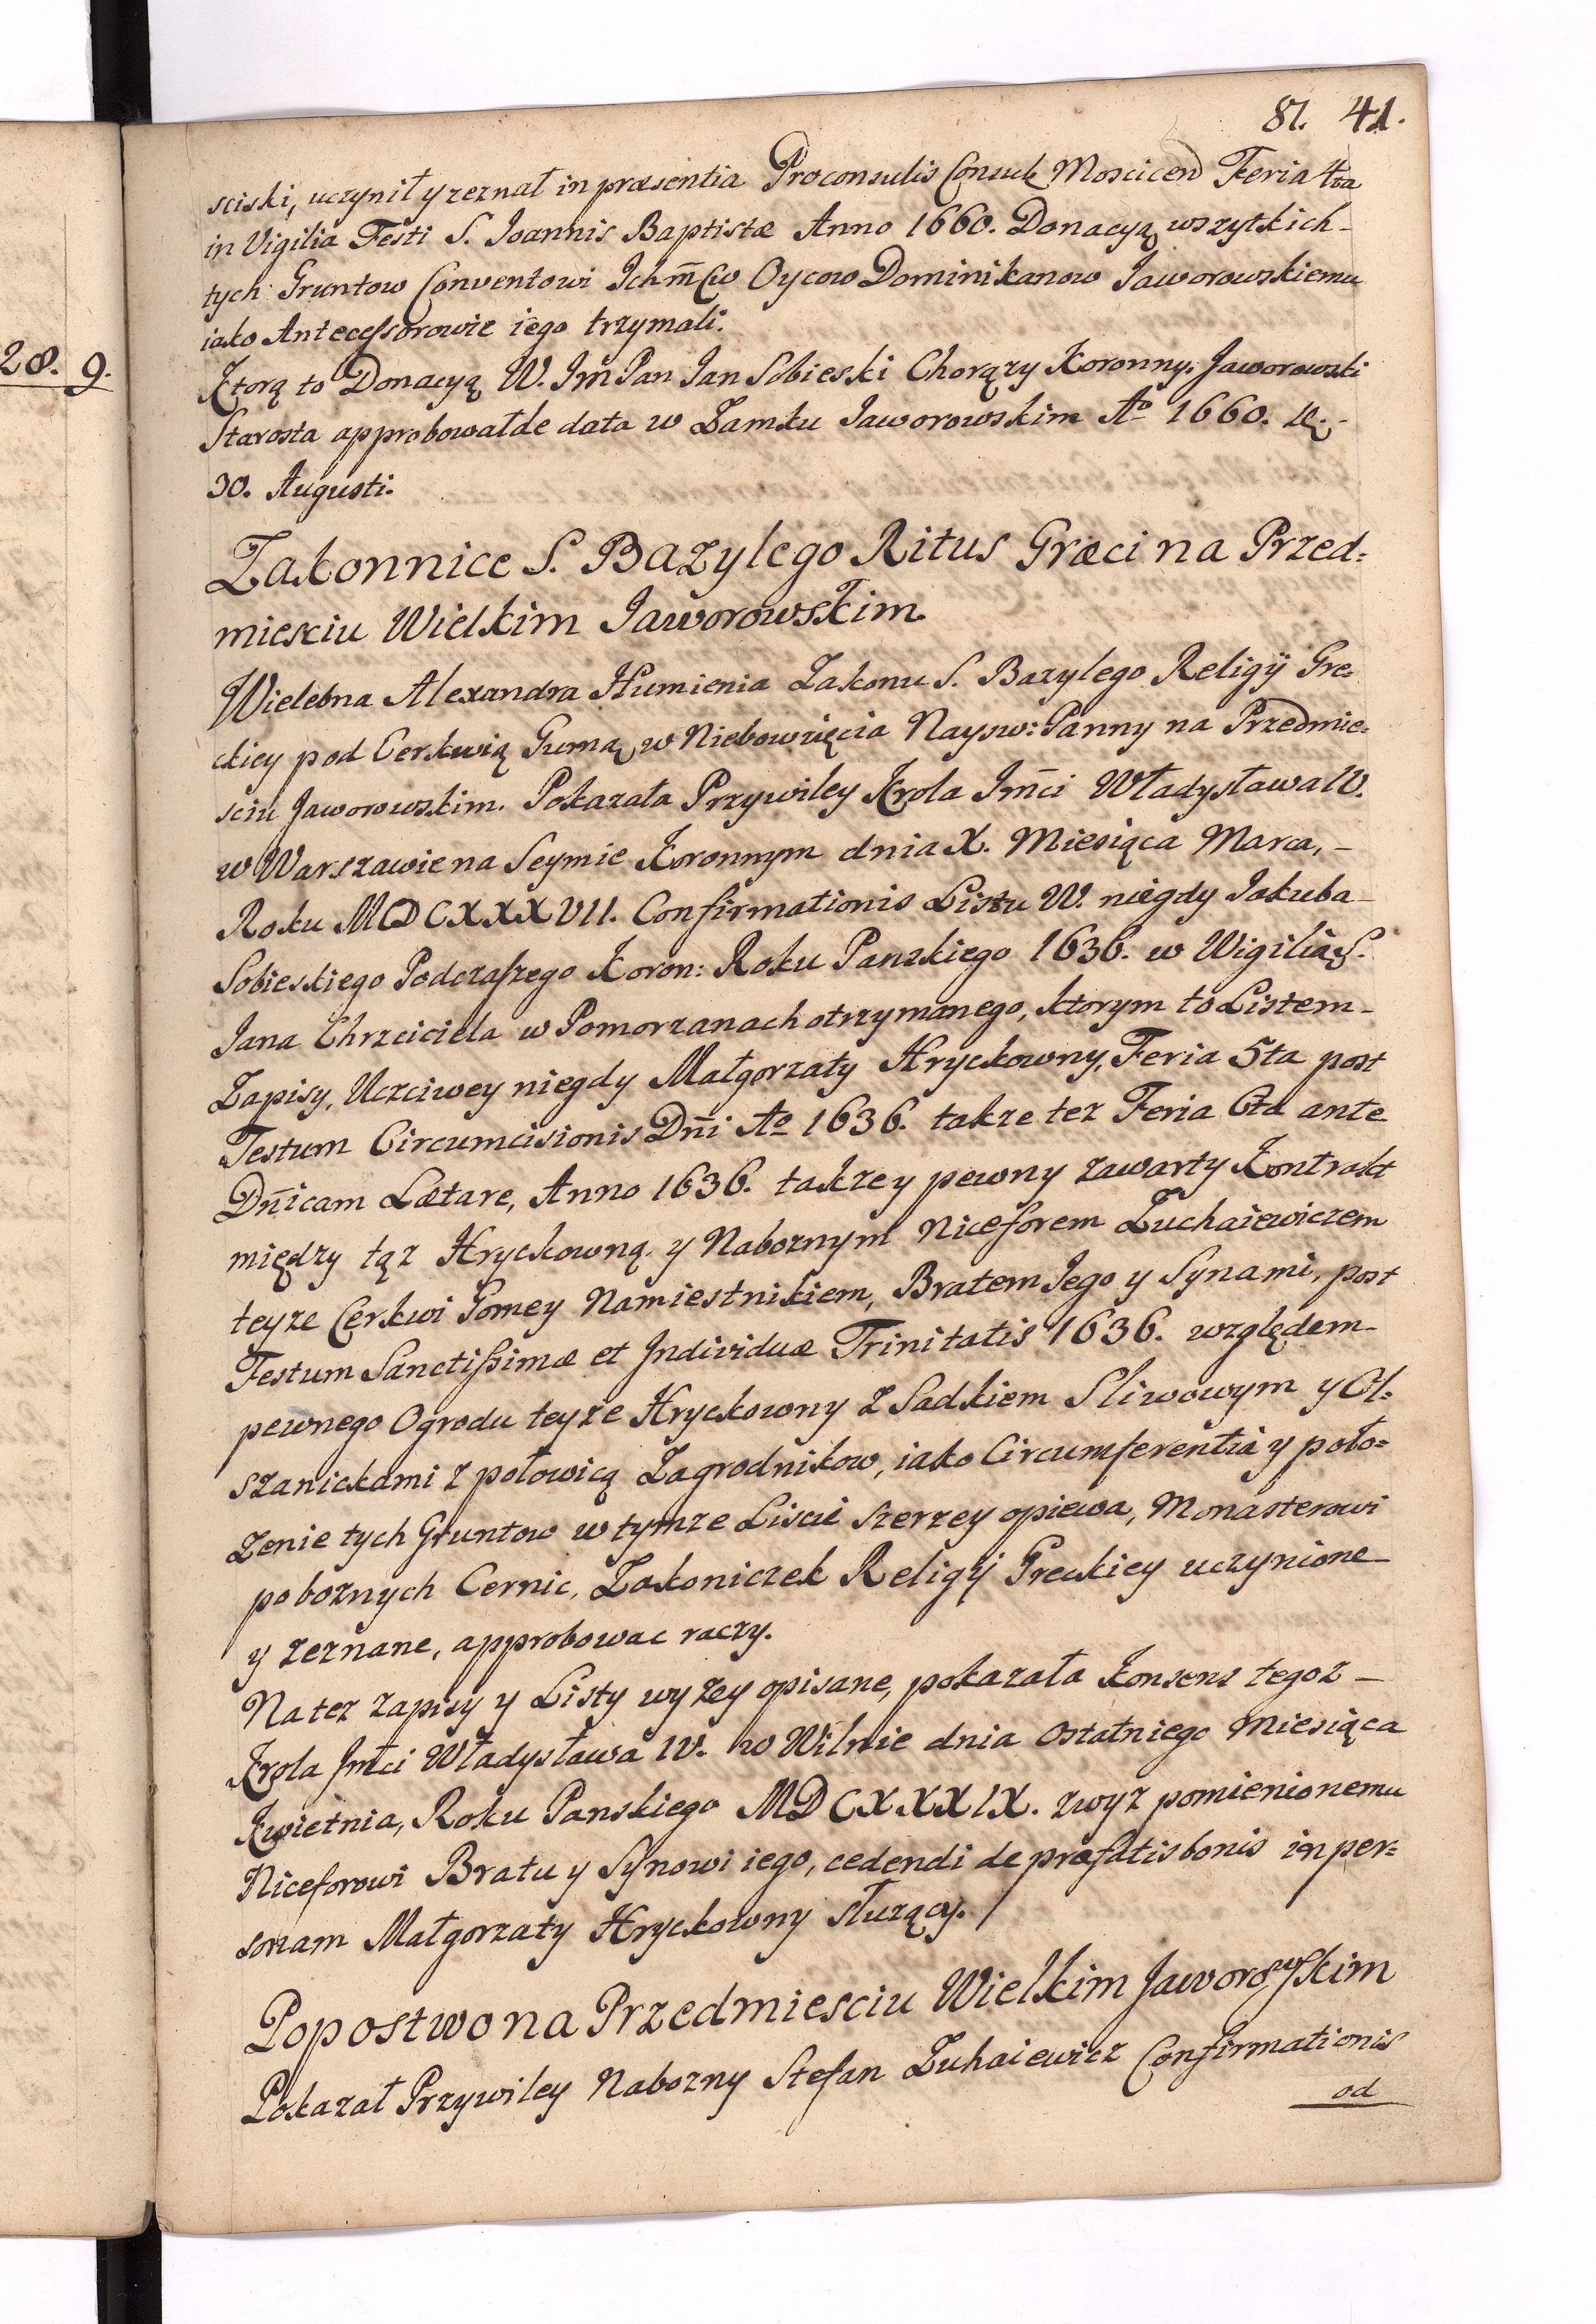 81. 41.
sciski, uczynił y zeznał in præsentia Proconsulis Consule Moscicen Feria 4ta
in Vigilia Festi S. Joannis Baptistæ Anno 1660. Donacyą wszytkich
tych Gruntow Conventowi Ichm̃Cw Oycow Dominikanow Jaworowskiemu
iako Antecessorowie iego trzymali.
28. 9.
Ktorą to Donacyą W. Jm̃ Pan Jan Sobieski Chorąży Koronny, Jaworowski
Starosta approbował de data w Zamku Jaworowskim Aº 1660.
30. Augusti.
Zakonnice S. Bazylego Ritus Græci na Przed=
miesciu Wielkim Jaworowskim.
Wielebna Alexandra Humienia Zakonu S. Bazylego Religÿ Gre=
ckiey pod Cerkwią Gumą w Niebowzięcia Naysw: Panny na Przedmie=
sciu Jaworowskim. Pokazała Przywiley Krola Jm̃ci Władysława IV.
w Warszawie na Seymie Koronnym dnia X. Miesiąca Marca, –
Roku MDCXXXVII. Confirmationis Listu W. niegdy Jakuba
Sobieskiego Podczaszego Koron: Roku Panskiego 1636. w Wigilią S.
Jana Chrzciciela w Pomorzanach otrzymanego, ktorym to Listem
Zapisy, Uczciwey niegdy Małgorzaty Hryckowny, Feria 5ta post
Festum Circumcisionis Dñi Aº 1636. takze tez Feria 6ta ante
Dñicam Lætare, Anno 1636. takze y pewny zawarty Kontrakt
między tąz Hryckowną y Naboznym Niceforem Zuchaiewiczem
teyze Cerkwi Gomey Namiestnikiem, Bratem Jego y Synami, post
Festum Sanctissimæ et Individuæ Trinitatis 1636. względem
pewnego Ogrodu teyze Hryckowny z Sadkiem Sliwowym y Ol=
szanickami z połowicą Zagrodnikow, iako Circumferentia y poło=
zenie tych Gruntow w tymze Liscie szerzey opiewa, Monasterowi
poboznych Cernic, Zakoniczek Religÿ Greckiey uczynione
y zeznane, approbowac raczy.
Na tez zapisy y Listy wyzey opisane, pokazała Konsens tegoz –
Krola Jmci Władysława IV. w Wilnie dnia Ostatniego Miesiąca
Kwietnia, Roku Panskiego MDCXXXIX. zwyz pomienionemu
Niceforowi Bratu y Synowi iego, cedendi de præfatis bonis in per=
sonam Małgorzaty Hryckowny słuzący.
Popostwo na Przedmiesciu Wielkim Jaworowskim
Pokazał Przywiley Nabozny Stefan Zuhaiewicz Confirmationis
od